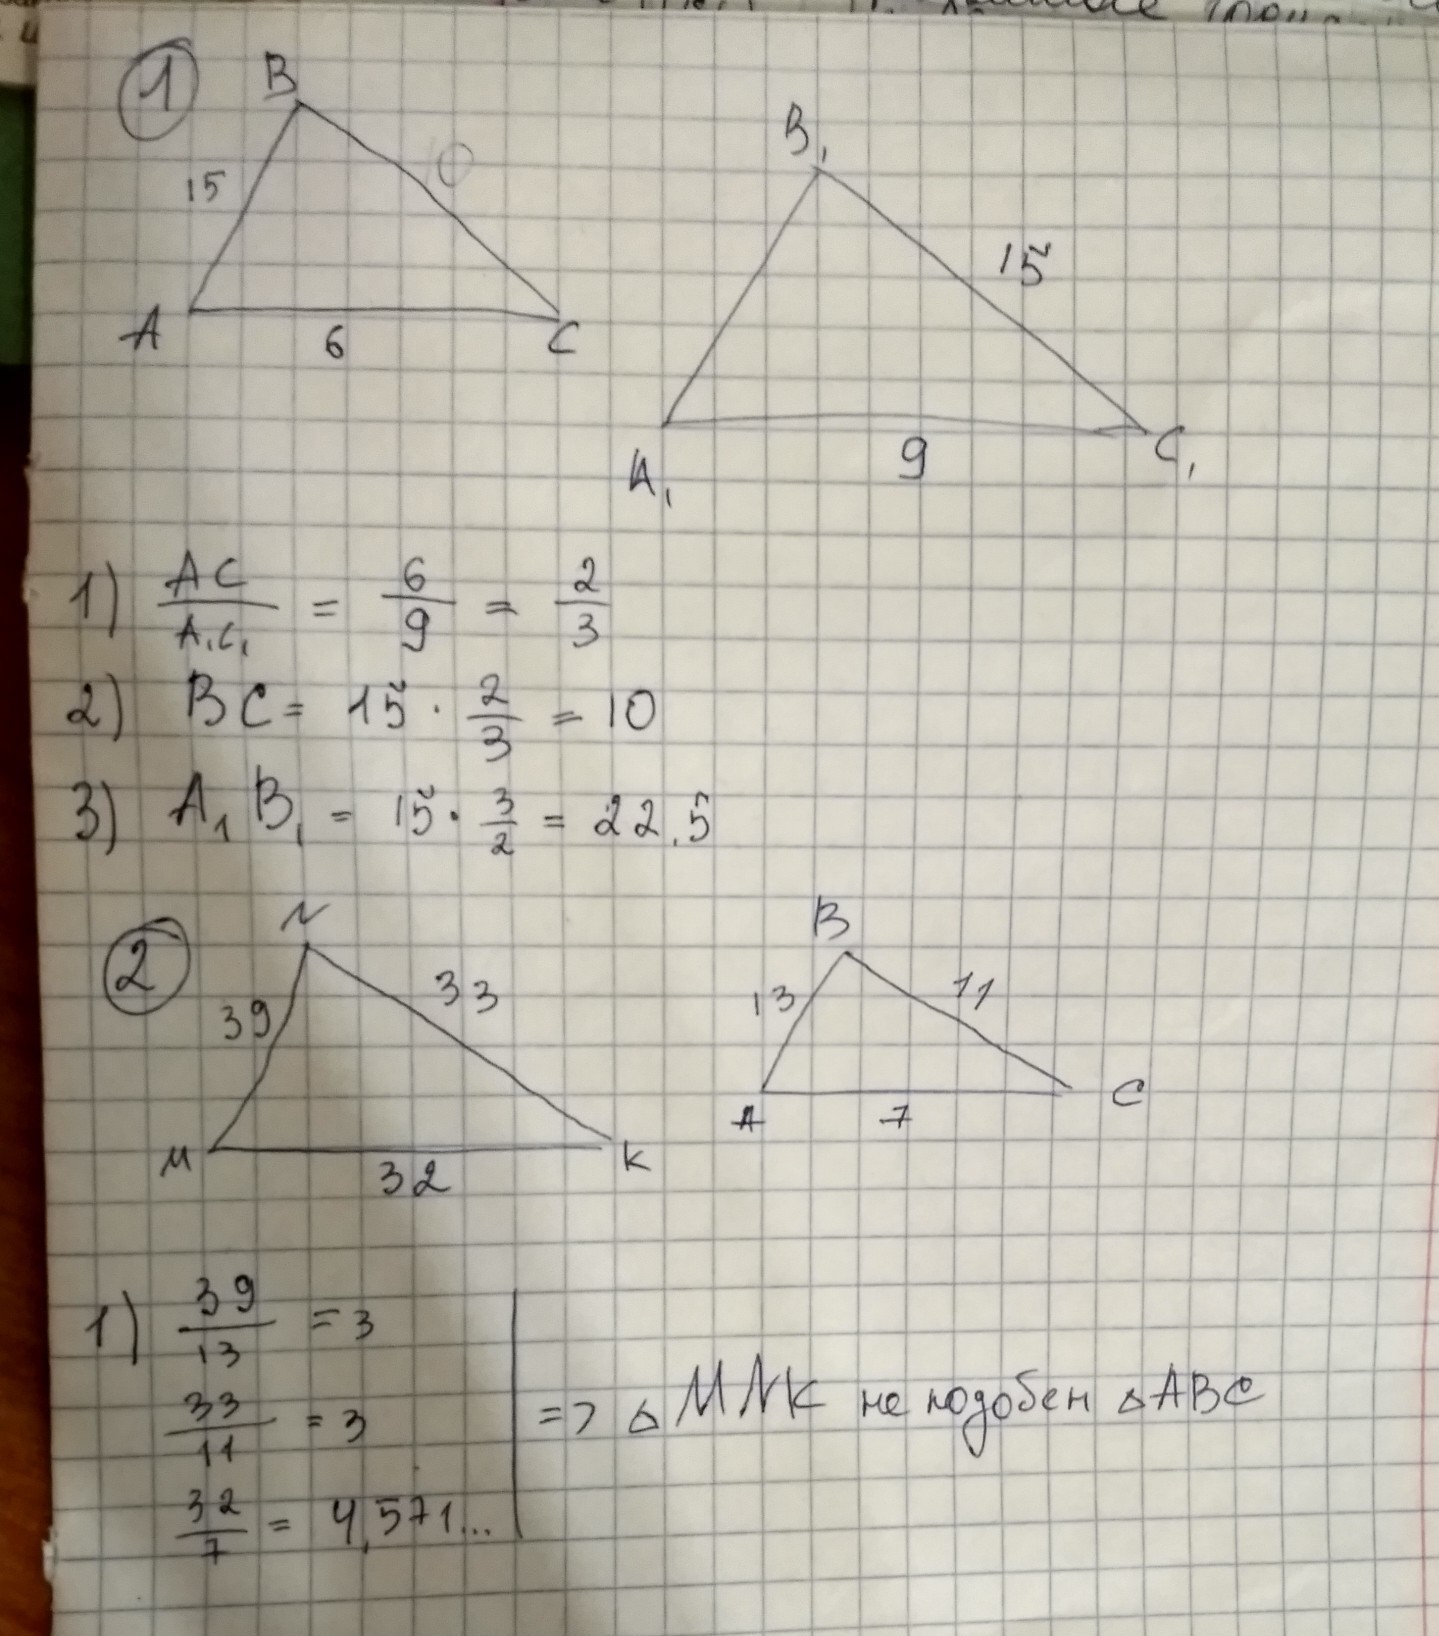 1
B
15
A
6
C
B₁
15
A₁
9
C₁
1) AC/A₁C₁ = 6/9 = 2/3
2) BC = 15 · 2/3 = 10
3) A₁B₁ = 15 · 3/2 = 22,5
2
N
39
33
M
32
K
B
13
11
A
7
C
1) 39/13 = 3
33/11 = 3
=> △MNK не подобен △ABC
32/7 = 4,571...